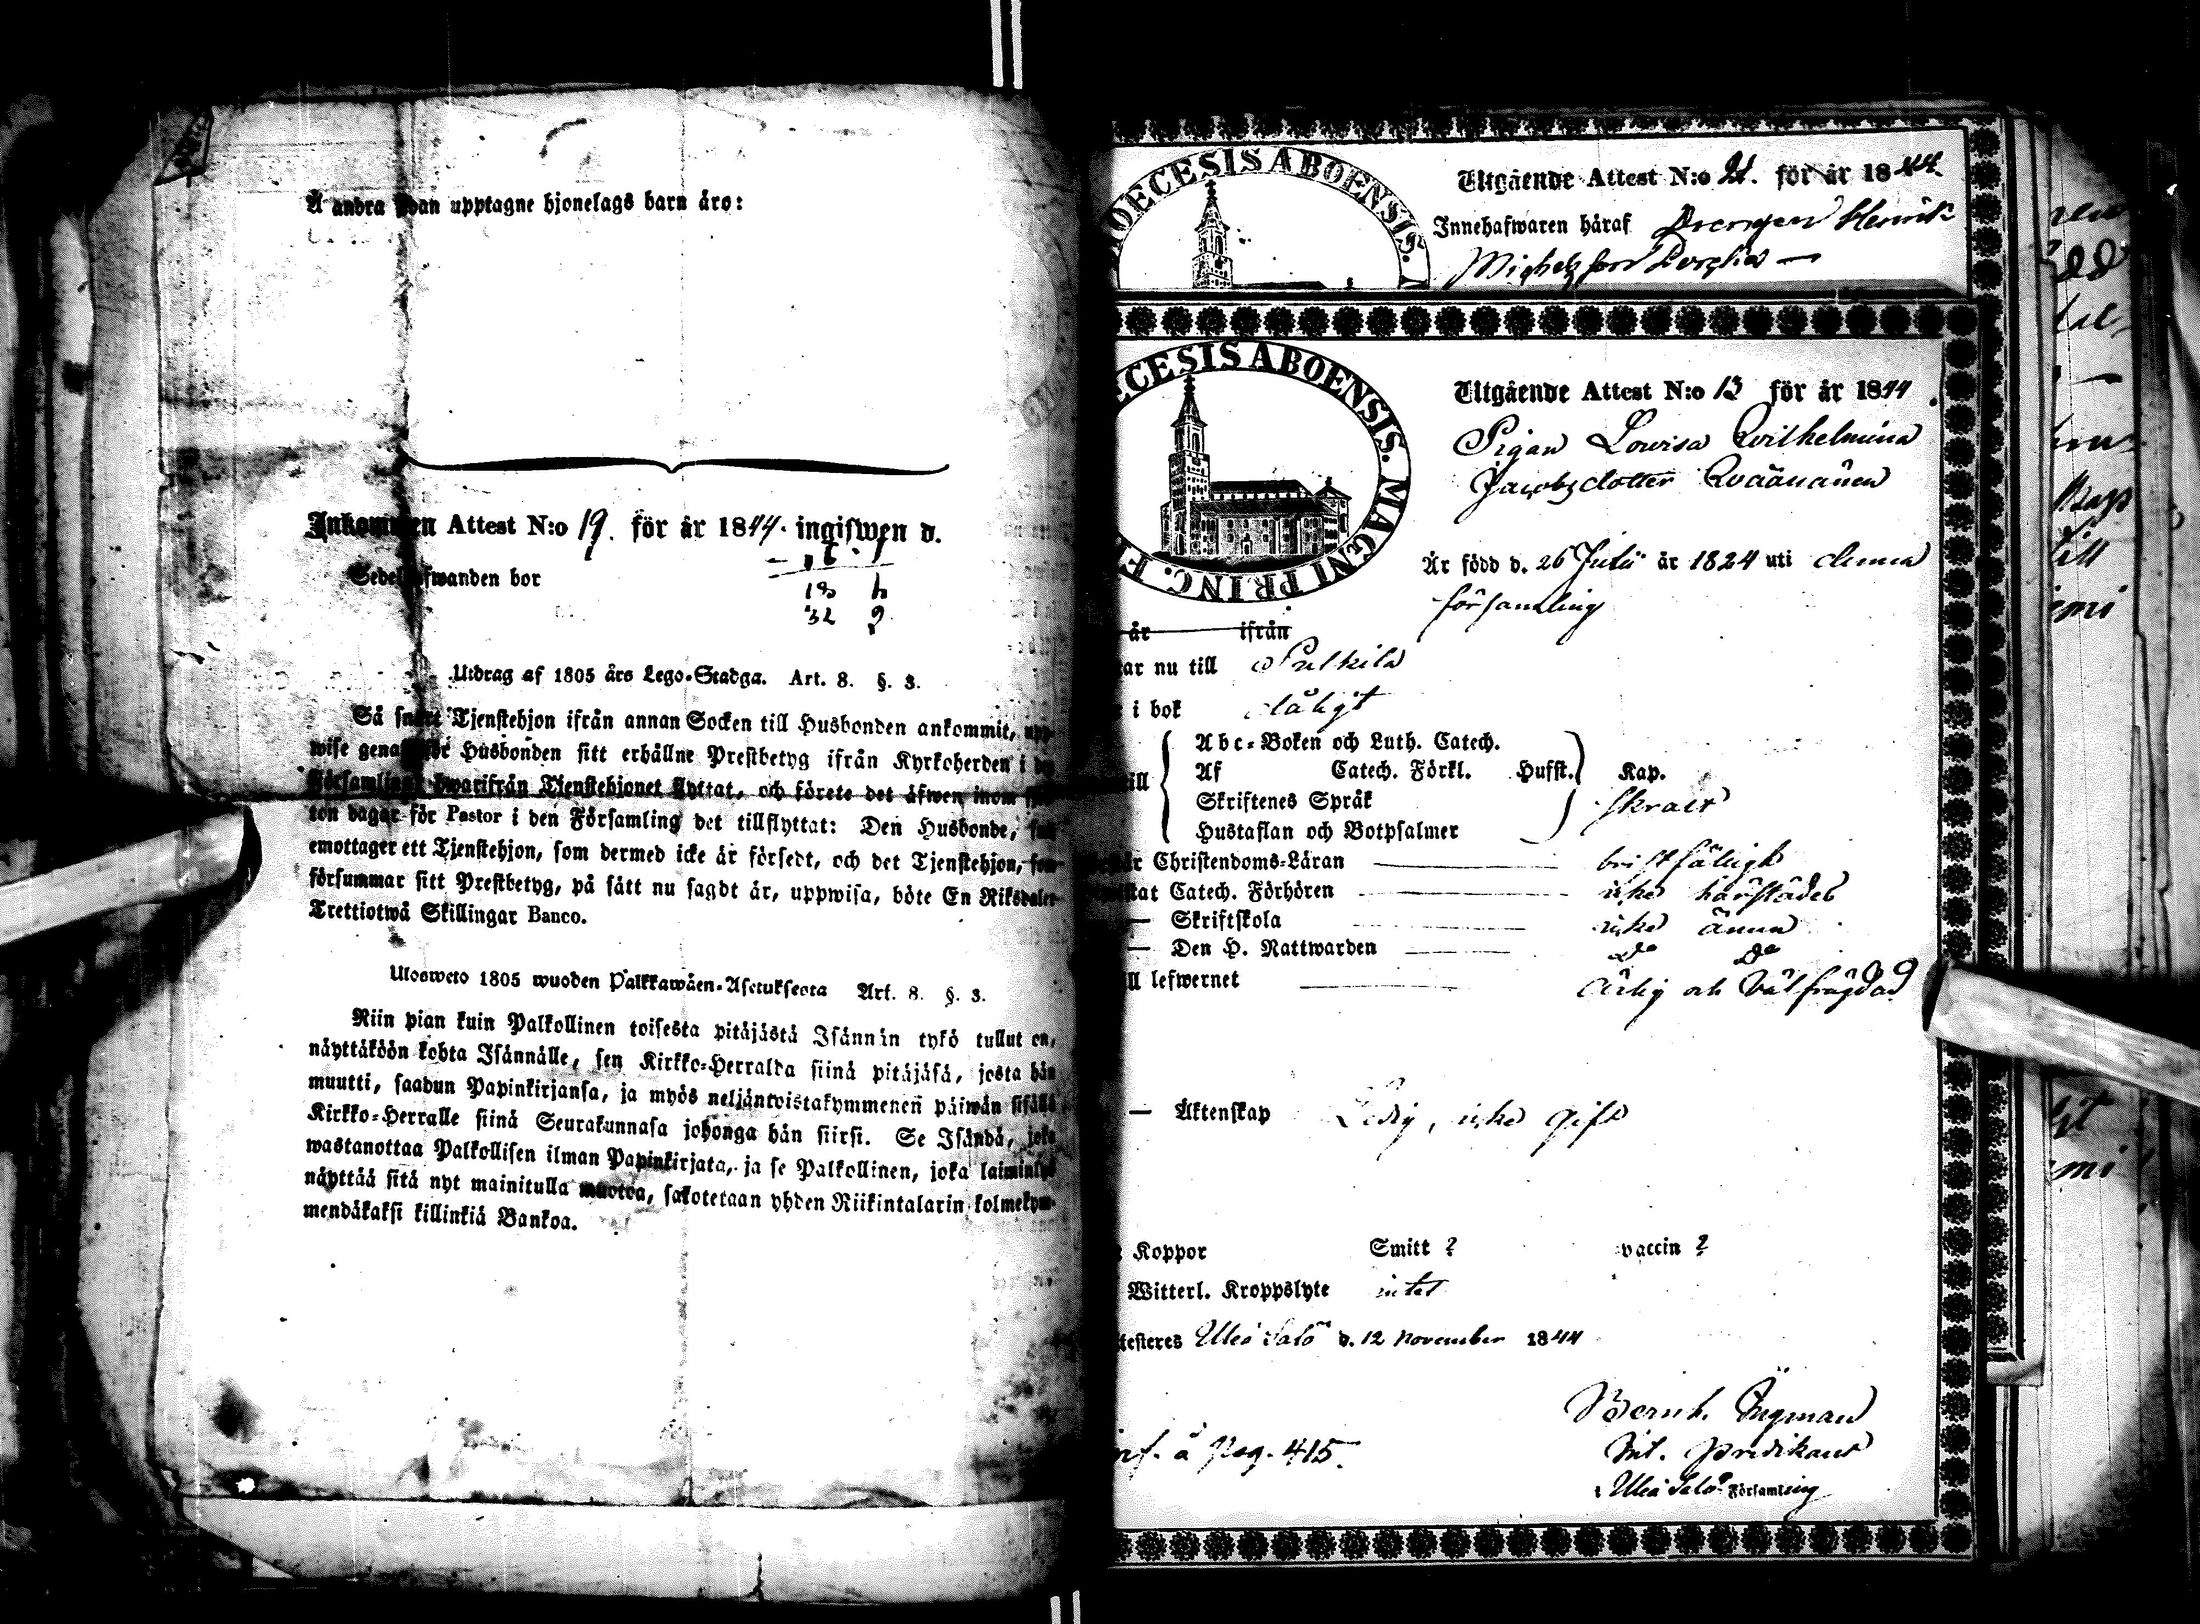 Å andra sidan upptagne hjonelags barn äro:
Inkommen Attest N:o 19. för år 1844. ingifwen d.
Sedelhafwanden bor
Utdrag af 1805 års Lego-Stadga. Art. 8. §. 3.
Så snart Tjenstehjon ifrån annan Socken till Husbonden ankommit, upp-
wise genast för Husbonden sitt erhållne Prestbetyg ifrån Kyrkoherden i
församling hwarifrån Tjenstehjonet flyttat, och förete det äfwen inom
ton dagar för Pastor i den Församling det tillflyttat: Den Husbonde,
emottager ett Tjenstehjon, som dermed icke är försedt, och det Tjenstehjon, som
försummar sitt Prestbetyg, på sätt nu sagdt är, uppwisa, böte En Riksdaler
Trettiotwå Skillingar Banco.
Ulosweto 1805 wuoden Palkkawäen-Asetuksesta Art. 8. §. 3.
Niin pian kuin Palkollinen toisesta pitäjästä Isännän tykö tullut on,
näyttäköön kohta Isännälle, sen Kirkko-Herralda siinä pitäjäsä, josta hän
muutti, saadun Papinkirjansa, ja myös neljäntoistakymmenen päiwän sisällä
Kirkko-Herralle siinä Seurakunnasa johonga hän siirsi. Se Isändä, joka
wastanottaa Palkollisen ilman Papinkirjata, ja se Palkollinen, joka laiminlyö
näyttää sitä nyt mainitulla muotoa, sakotetaan yhden Riikintalarin kolmekym-
mendäkaksi killinkiä Bankoa.
DIOECESIS ABOENSIS.
Utgående Attest N:o 21. för år 1844.
Innehafwaren häraf Drengen Henrik
Michelsson
ECESIS ABOENSIS. MAGNI PRINC. F
Utgående Attest N:o 13 för år 1844.
Pigan Lovisa Wilhelmina
Jacobsdotter Qväänänen
Är född d. 26 Julii år 1824 uti denna
församling
år ifrån
ar nu till Pulkila
i bok dåligt
ill Abc-Boken och Luth. Catech.
Af Catech. Förkl. Hufst. Kap.
Skriftenes Språk skralt
Hustaflan och Botpsalmer
Christendoms-Läran bristfäligt
Catech. Förhören icke härstädes
— Skriftskola icke ännu
— Den H. Nattwarden do do
ll lefwernet ärlig och välfrägdad
— Äktenskap Ledig, icke gift
Koppor Smitt ? vaccin ?
Witterl. Kroppslyte intet
testeres Uleå Salo d. 12 November 1844
Bernh. Ingman
inf. å pag. 415.
Int. predikant
i Uleå Salo Församling